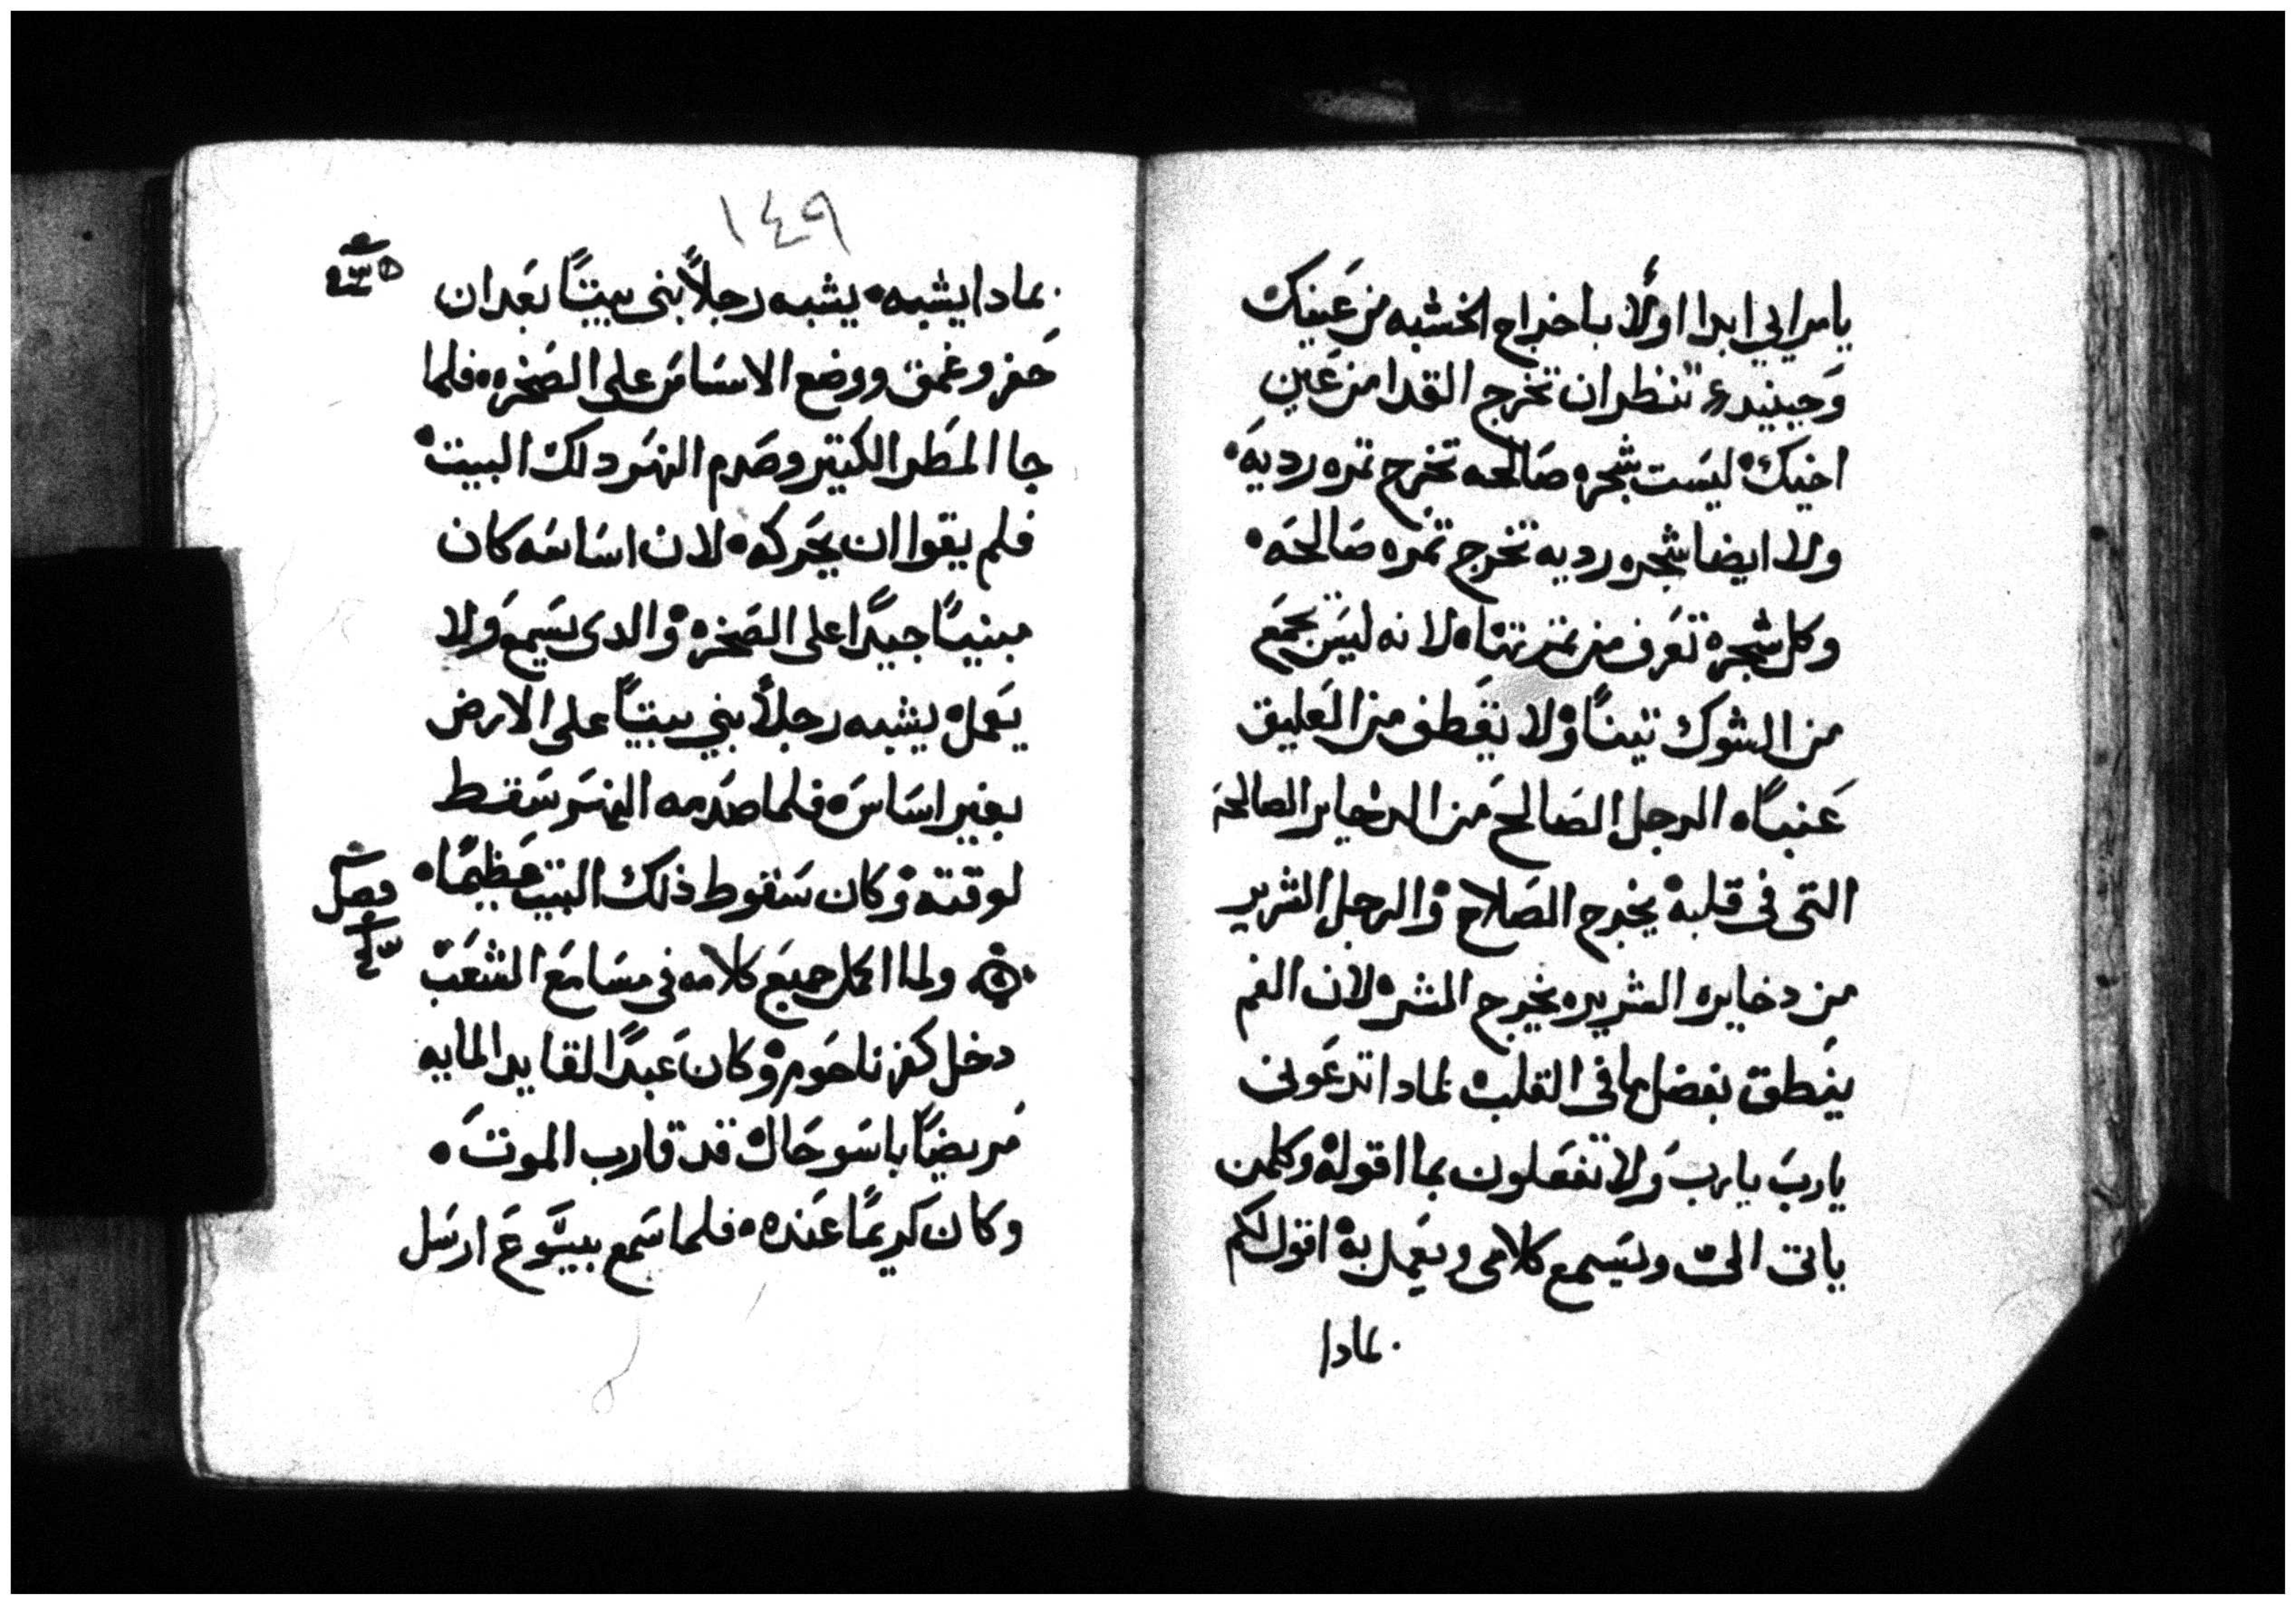 يامرايي ابدا اولًا باخراج الخشبه من عَينك
وَحينيدٍ تنظران تخرج القدا من عَين
اخيك ليسَت شجره صَالحه تخرج ثمره رديهَ
ولا ايضا شجره رديه تخرج ثمره صَالحهَ
وكل شجره تعَرف من ثمرتها لانه ليسَ يجمَع
من الشوك تينًا ولا يقَطف من العَليق
عَنبًا الرجل الصَالح من الدخاير الصالحهَ
التى فى قلبه يخرج الصَلاح والرجل الشرير
من دخايره الشريره يخرج الشر لان الفم
ينَطق بفضل ما فى القلب لمادا تدعَونى
ياربَ ياربَ وَلا تفعَلون بما اقوله وكلمن
ياتى الىّ ويسَمع كلامى ويعَمل به اقول لكم
لمادا
١٤٩
لمادا يشبه يشبه رجلاً بنى بيتًا بعَد ان
حَفر وغمق ووضع الاسَاسَ على الصَخره فلما
جا المطَر الكتير وصَدم النهَر دلك البيت
فلم يقوا ان يحَركه لان اسَاسَه كان
مبنيًا جيدًا على الصَخره والدى يسَمع وَلا
يعَمل يشبه رجلاً بني بيتًا على الارض
بغير اسَاسَ فلما صَدمه النهَر سَقط
لوقته وكان سَقوط ذلك البيت عظيمًا
فصل
ولما اكمل جميعَ كلامه فى مسَامعَ الشعَبَ
دخل كفرناحَوم وكانَ عَبدًا لقايد المايه
مَريضًا باسَو حَال قد قارب الموتَ
وكانَ كريمًا عَنده فلما سَمع بيسَوعَ ارسَل